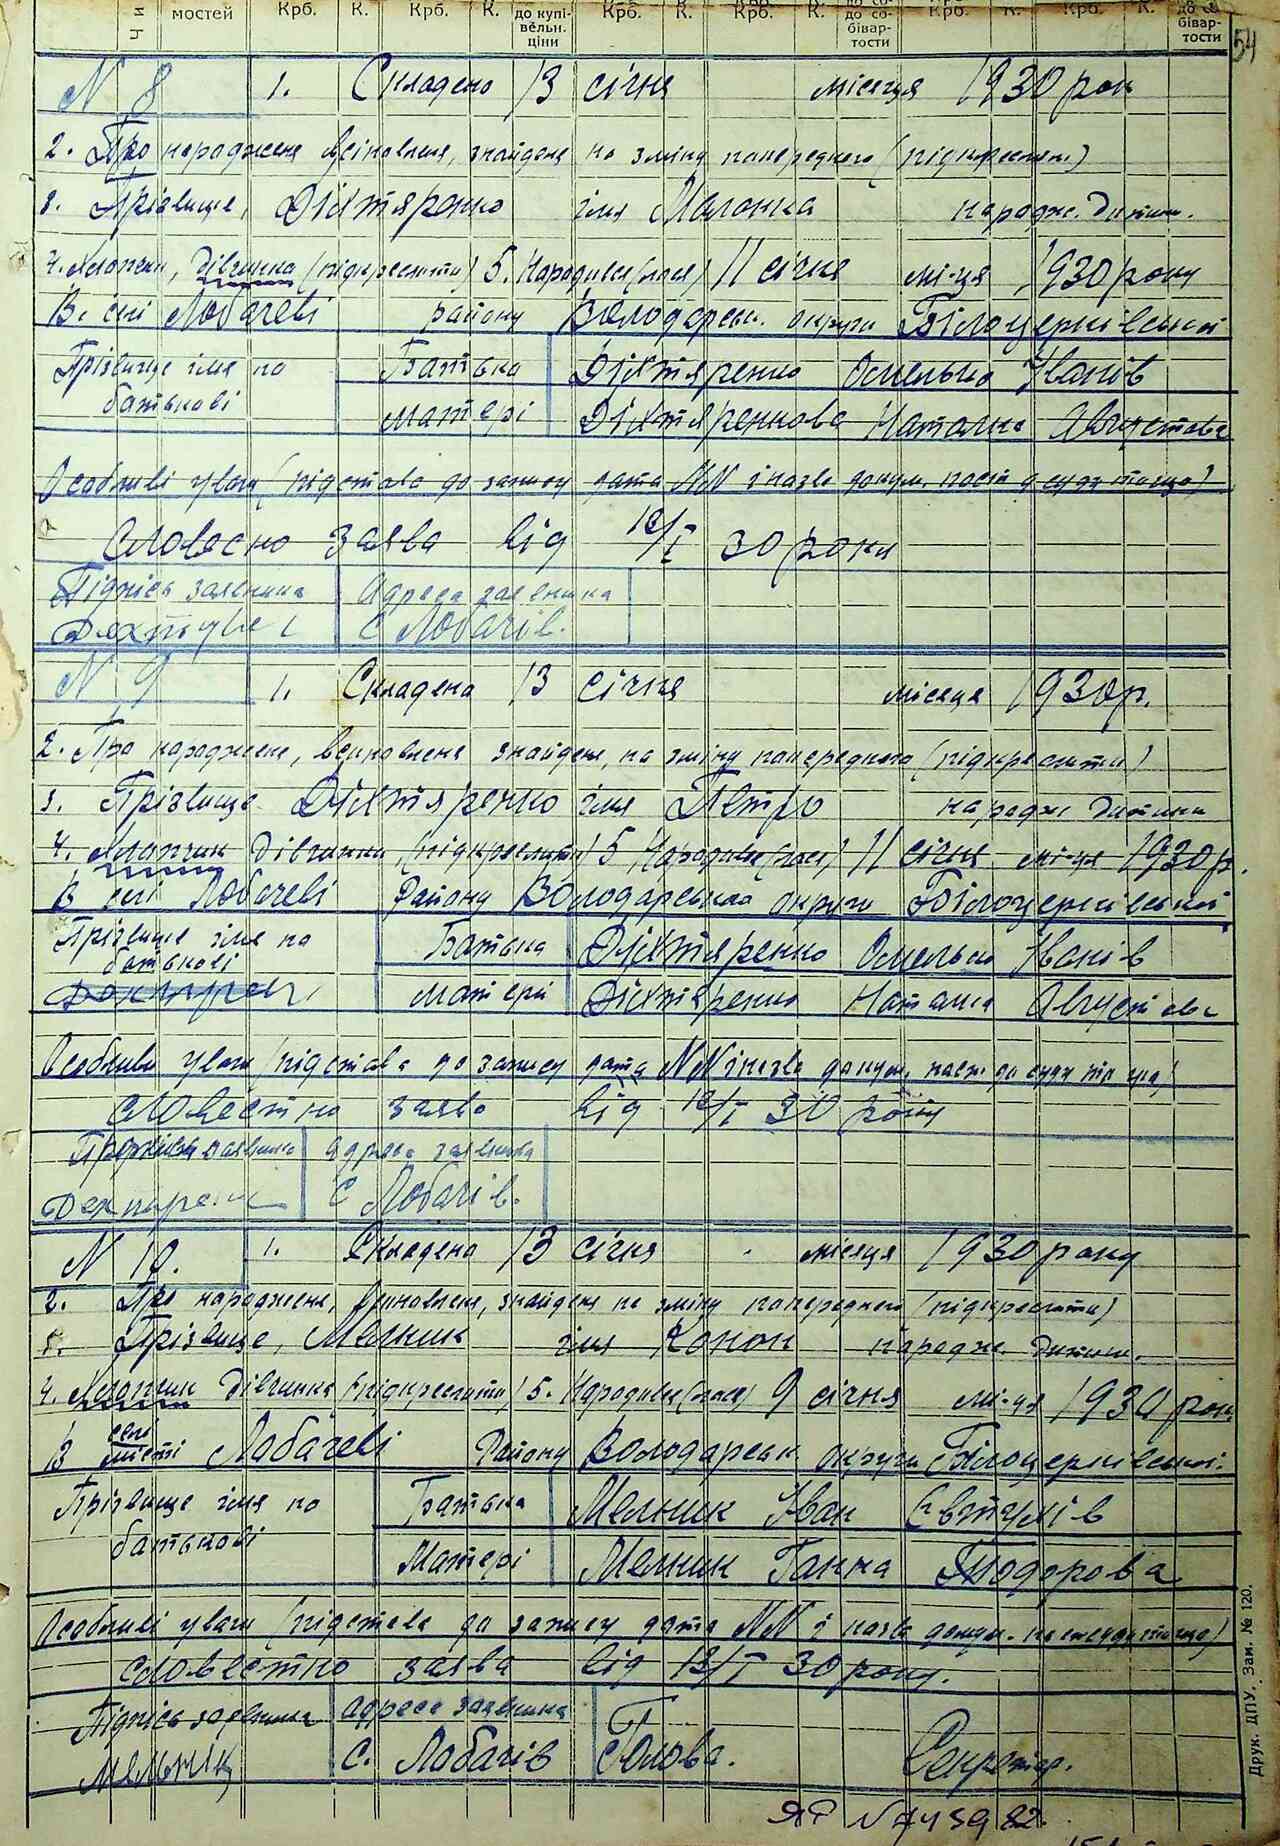 мостей Крб. К. Крб. К. до купівельн. ціни Крб. К. Крб. К. до собівартости Крб. К. Крб. К. до собівартости
54
N 8 1. Складено 13 січня місяця 1930 рок
2. Про народження, всиновлення, знайдене на зміну попереднього (підкреслити)
3. Прізвище, Діхтяренко ім'я Маланка народж. дитини.
4. Хлопчик, дівчинка (підкреслити) 5. Народився(лася) 11 січня мі-ця 1930 року
В. селі Лобачеві району Володарськ. округи Білоцерківської
Прізвище ім'я по батькові Батька Діхтяренко Омелько Іванів
Матері Діхтяренкова Наталка Августова
Особливі уваги (підстава до запису дата NN і назва докум. пост. суду тощо)
Словесно заява від 12/I 30 року
Підпись заявника Адреса заявника
С Лобачів.
N 9 1. Складено 13 січня місяця 1930 р.
2. Про народжене, всиновлене знайдене, на зміну попереднього (підкреслити)
3. Прізвище Діхтяренко ім'я Петро народж дитини
4. Хлопчик дівчинка (підкреслити) 5 Народився(лася) 11 січня мі-ця 1930 р.
В селі Лобачеві Району Володарської округи Білоцерківської
Прізвище ім'я по батькові Батька Діхтяренко Омелько Іванів
Матері Діхтяренко Наталка Августова
Особливі уваги (підстава до запису дата NN і назва докум. пост. суду тощо)
словестно заява від 12/I 30 року
Підпись заявника адреса заявника
С Лобачів.
N 10. 1. Складено 13 січня місяця 1930 року
2. Про народження, всиновлене, знайдене на зміну попереднього (підкреслити)
3. Прізвище, Мельник ім'я Конон народж дитини.
4. Хлопчик дівчинка (підкреслити) 5. Народився(лася) 9 січня мі-ця 1930 року
В селі місті Лобачеві Району Володарськ округи Білоцерківської.
Прізвище ім'я по батькові Батька Мельник Іван Євтухів
Матері Мельник Ганна Тодорова
Особливі уваги (підстава до запису дата NN і назва докум. пост суду тощо)
словестно заява від 12/I 30 року.
Підпись заявника адреса заявника
Мельник С. Лобачів Голова. Секретар.
ЯР N 745982.
Друк. ДПУ. Зам. № 120.